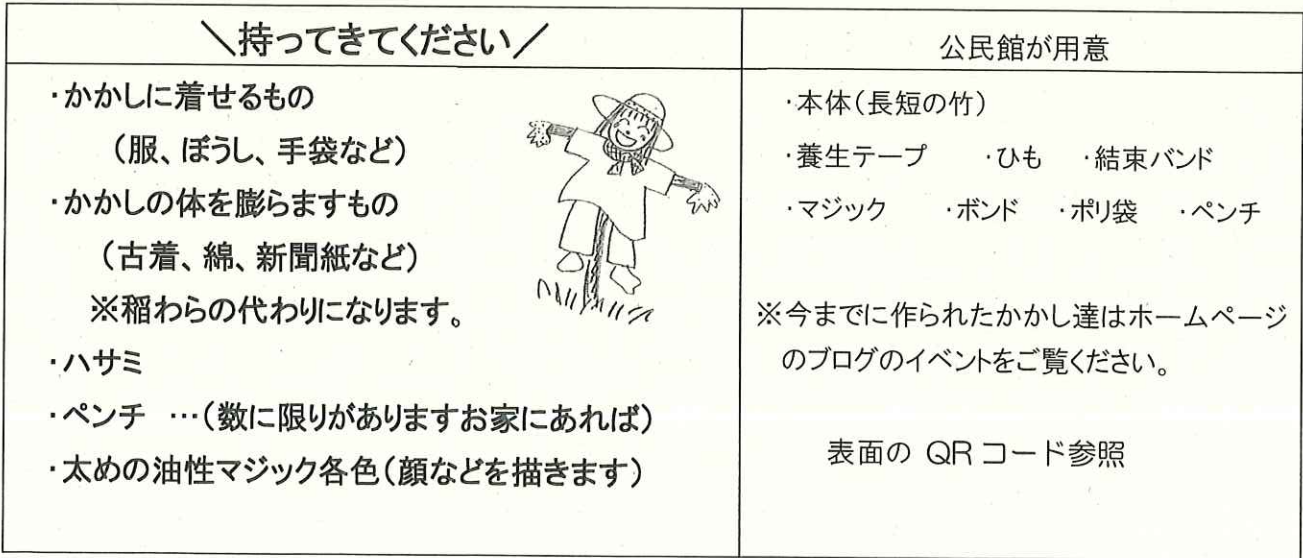 ＼持ってきてください／
・かかしに着せるもの
（服、ぼうし、手袋など）
・かかしの体を膨らますもの
（古着、綿、新聞紙など）
※稲わらの代わりになります。
・ハサミ
・ペンチ …（数に限りがありますお家にあれば）
・太めの油性マジック各色（顔などを描きます）
公民館が用意
・本体（長短の竹）
・養生テープ ・ひも ・結束バンド
・マジック ・ボンド ・ポリ袋 ・ペンチ
※今までに作られたかかし達はホームページ
のブログのイベントをご覧ください。
表面の QRコード参照